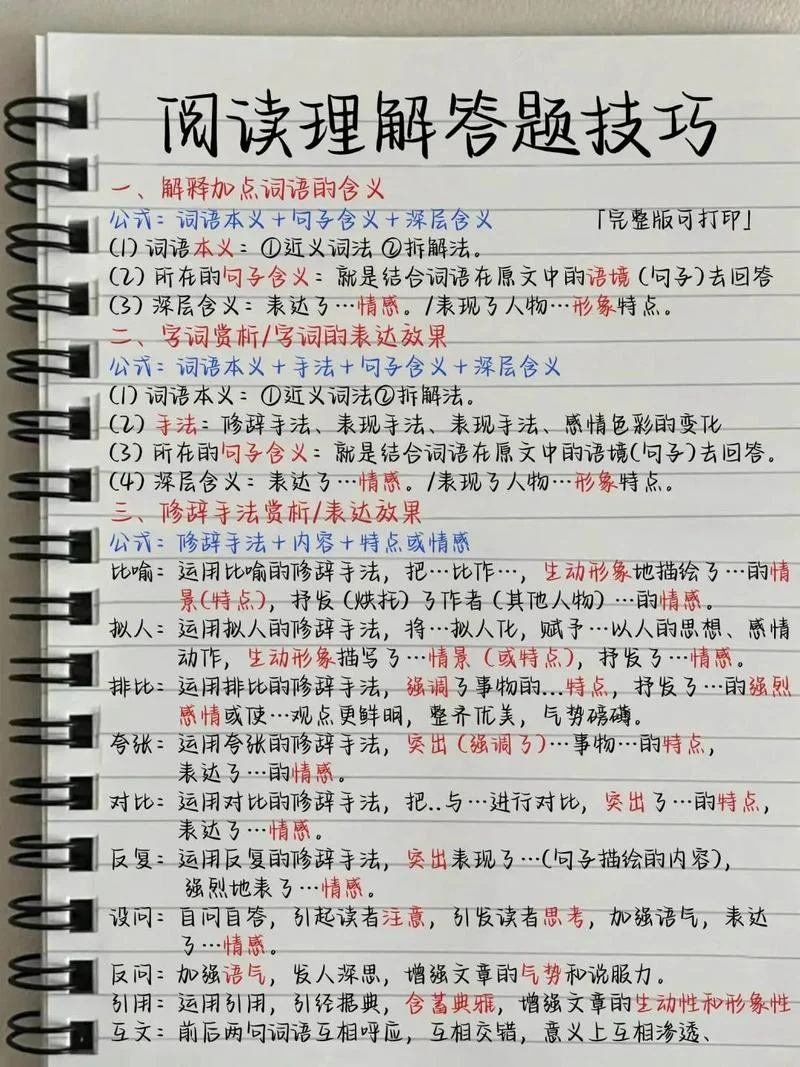 阅读理解答题技巧
一、解释加点词语的含义
公式：词语本义＋句子含义＋深层含义 「完整版可打印」
(1) 词语本义：①近义词法 ②拆解法。
(2) 所在的句子含义：就是结合词语在原文中的语境(句子)去回答
(3) 深层含义：表达了…情感。/表现了人物…形象特点。
二、字词赏析/字词的表达效果
公式：词语本义＋手法＋句子含义＋深层含义
(1) 词语本义：①近义词法②拆解法。
(2) 手法：修辞手法、表现手法、表现手法、感情色彩的变化
(3) 所在的句子含义：就是结合词语在原文中的语境(句子)去回答。
(4) 深层含义：表达了…情感。/表现了人物…形象特点。
三、修辞手法赏析/表达效果
公式：修辞手法＋内容＋特点或情感
比喻：运用比喻的修辞手法，把…比作…，生动形象地描绘了…的情
景(特点)，抒发(烘托)了作者(其他人物)…的情感。
拟人：运用拟人的修辞手法，将…拟人化，赋予…以人的思想、感情
动作，生动形象描写了…情景(或特点)，抒发了…情感。
排比：运用排比的修辞手法，强调了事物的...特点，抒发了…的强烈
感情或使…观点更鲜明，整齐优美，气势磅礴。
夸张：运用夸张的修辞手法，突出(强调了)…事物…的特点，
表达了…的情感。
对比：运用对比的修辞手法，把..与…进行对比，突出了…的特点，
表达了…情感。
反复：运用反复的修辞手法，突出表现了…(句子描绘的内容)，
强烈地表了…情感。
设问：自问自答，引起读者注意，引发读者思考，加强语气，表达
了…情感。
反问：加强语气，发人深思，增强文章的气势和说服力。
引用：运用引用，引经据典，含蓄典雅，增强文章的生动性和形象性
互文：前后两句词语互相呼应，互相交错，意义上互相渗透、